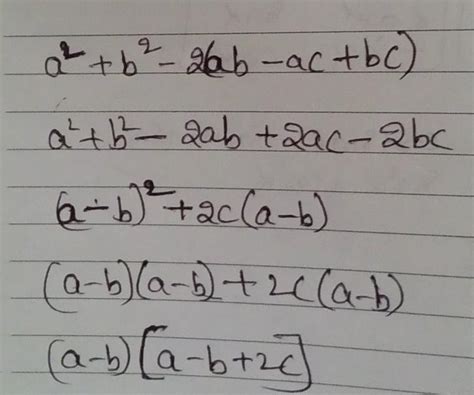 a² + b² - 2(ab - ac + bc)
a² + b² - 2ab + 2ac - 2bc
(a - b)² + 2c(a-b)
(a-b)(a-b) + 2c(a-b)
(a-b)[a-b+2c]